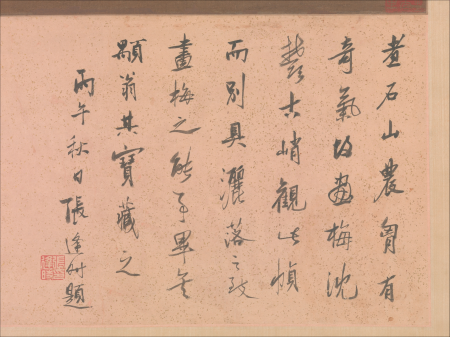 煮石山農胷有
奇氣故畫梅沈
鬱古峭觀此幀
而別具灑落之致
畫梅之能事畢矣
翁其寶藏之
丙午秋日張題